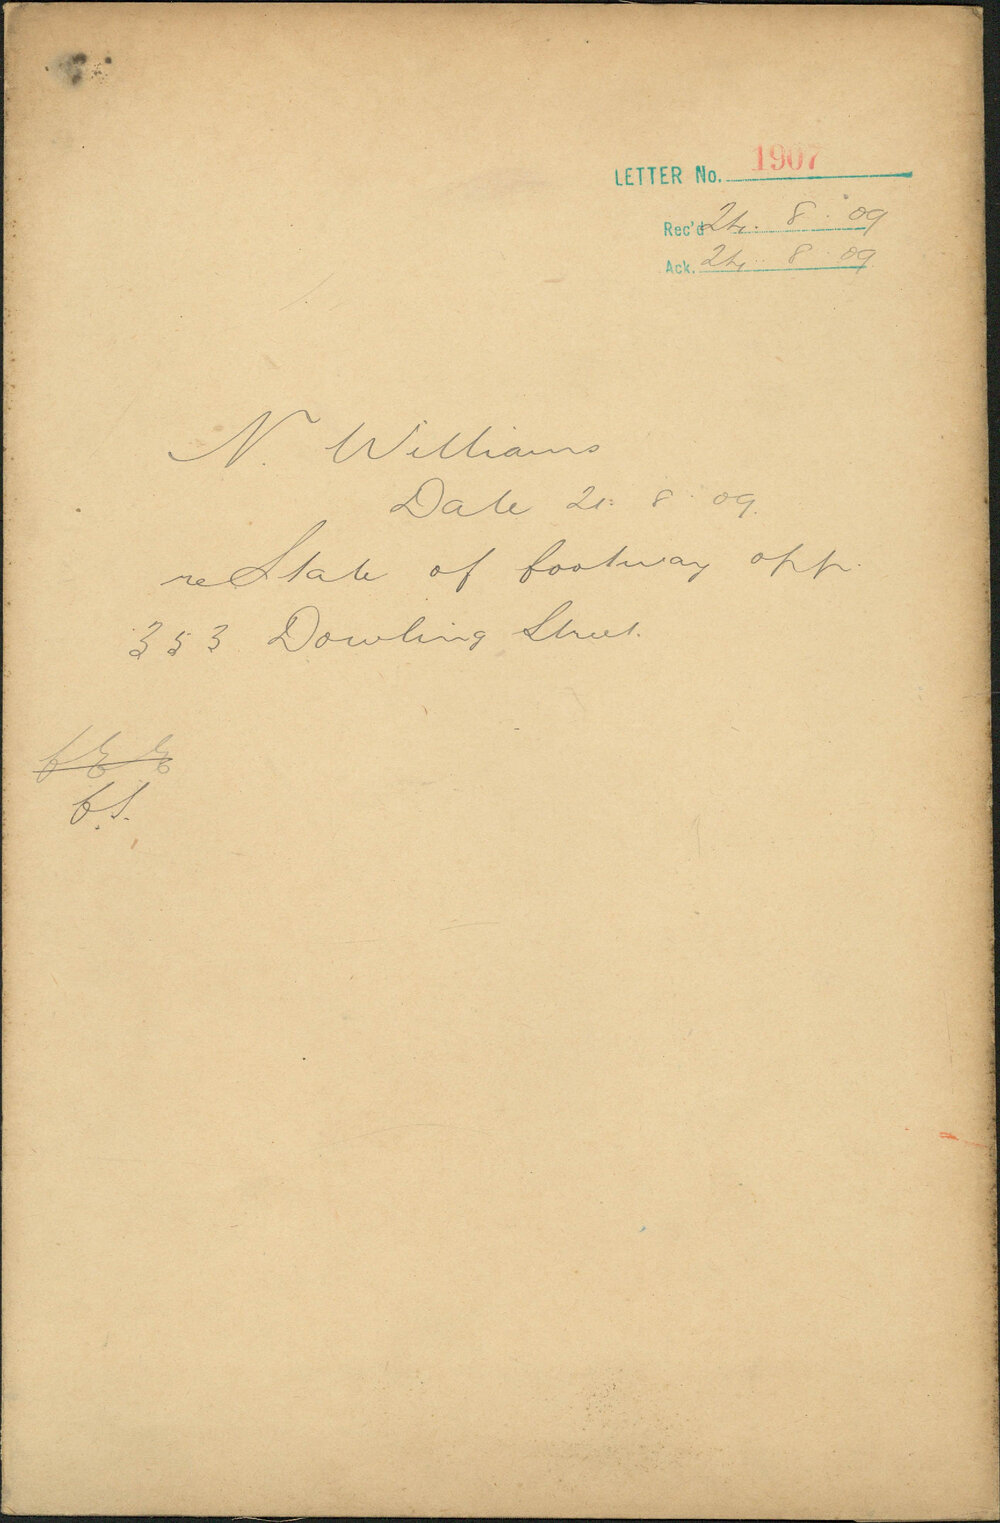 LETTER No. 1907
Rec'd 24. 8. 09
Ack. 24. 8 09
N. Williams
Date 21. 8. 09.
re State of footway opp.
353 Dowling Street.
C.S.